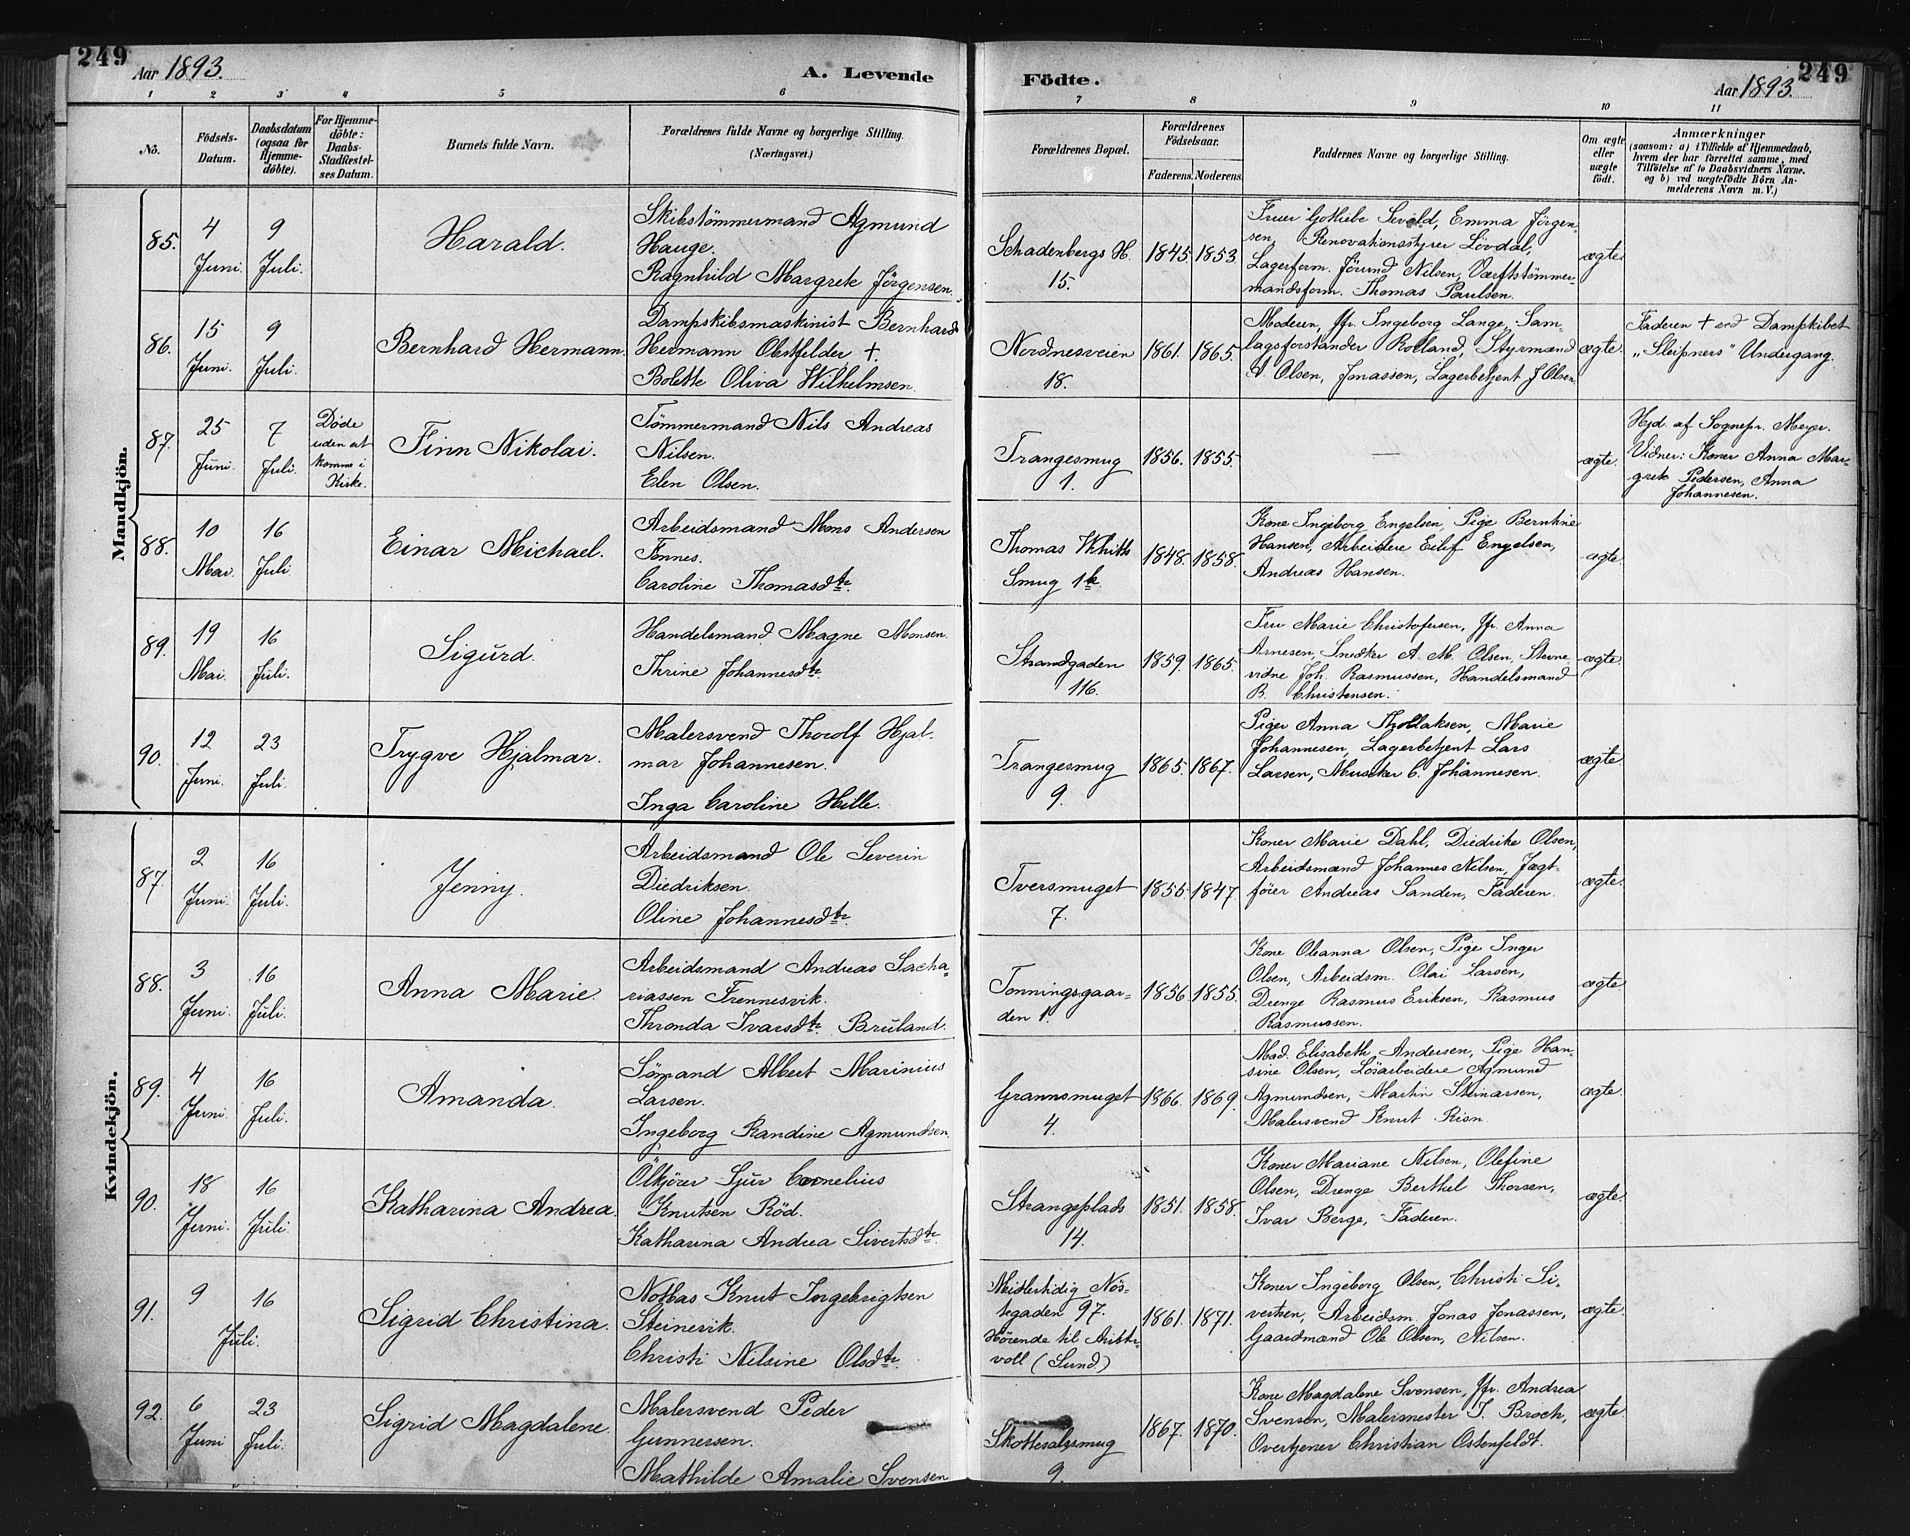 249
Aar 1893.
A. Levende
Födte.
Aar 1893.
249
1 2 3 4 5 6 7 8 9 10 11
No.
Födsels-
Datum.
Daabsdatum
(ogsaa for
Hjemme-
döbte).
For Hjemme-
döbte:
Daabs-
Stadfæstel-
ses Datum.
Barnets fulde Navn.
Forældrenes fulde Navne og borgerlige Stilling.
(Næringsvei.)
Forældrenes Bopæl.
Forældrenes
Födselsaar.
Faderens. Moderens.
Faddernes Navne og borgerlige Stilling.
Om ægte
eller
uægte
födt.
Anmærkninger
(saasom: a) i Tilfælde af Hjemmedaab,
hvem der har forrettet samme, med
Tilföielse af to Daabsvidners Navne,
og b) ved uægtefödte Börn An-
melderens Navn m. V.)
Mandkjön.
85.
4
Juni.
9
Juli.
Harald.
Skibstømmermand Agmund
Hauge.
Ragnhild Margrete Jörgensen.
Schadenbergs H.
15.
1845. 1853.
Fruer Gotliebe Sevald, Emma Jörgen-
sen, Renovationsstyrer Lövdal,
Lagerform. Jörund Nilsen, Værftstømmer-
mandsform. Thomas Paulsen.
ægte
86.
15
Juni.
9
Juli.
Bernhard Hermann.
Dampskibsmaskinist Bernhard
Hermann Obstfelder †.
Bolette Oliva Wilhelmsen.
Nordnesveien
18.
1861. 1865.
Moderen, Jfr. Ingeborg Lange, Sam-
lagsforstander Rolland, Styrmænd
A. Olsen, Jonassen, Lagerbetjent J Olsen.
ægte.
Faderen † ved Dampskibet
"Sleipners" Undergang.
87.
25
Juni.
7
Juli.
Døde
uden at
komme i
Kirke.
Finn Nikolai.
Tømmermand Nils Andreas
Nilsen.
Elen Olsen.
Trangesmug
1.
1856. 1855.
—
ægte.
Hjd af Sognepr. Meyer.
Vidner: Koner Anna Mar-
grete Pedersen, Anna
Johannesen.
88.
10
Mai.
16
Juli
Einar Michael.
Arbeidsmand Mons Andersen
Tonnes.
Caroline Thomasdtr.
Thomas Whitts
Smug 1b
1848. 1858.
Kone Ingeborg Engelsen, Pige Berntine
Hansen, Arbeidere Eilif Engelsen,
Andreas Hansen.
ægte
89.
19
Mai.
16
Juli.
Sigurd.
Handelsmand Magne Monsen.
Thrine Johannesdtr.
Strandgaden
116.
1859. 1865.
Fru Marie Christofersen, Jfr. Anna
Arnesen, Snedker A. M. Olsen, Stevne-
vidne Joh. Rasmussen, Handelsmand
B. Christensen.
ægte
90.
12
Juni.
23
Juli.
Trygve Hjalmar.
Malersvend Thorolf Hjal-
mar Johannesen.
Inga Caroline Hille.
Trangesmug
9.
1865. 1867.
Piger Anna Thollaksen, Marie
Johannesen, Lagerbetjent Lars
Larsen, Musiker C. Johannesen.
ægte
Kvindekjön.
87.
2
Juni.
16
Juli.
Jenny.
Arbeidsmand Ole Severin
Diedriksen.
Oline Johannesdtr.
Tversmuget
7.
1855. 1847.
Koner Marie Dahl, Diedrike Olsen,
Arbeidsmænd Johannes Nilsen, Jægt-
föier Andreas Sanden, Faderen.
ægte.
88.
3
Juni.
16
Juli.
Anna Marie.
Arbeidsmand Andreas Sacha-
riassen Frennesvik.
Thronda Ivarsdtr. Bruland.
Tonningsgaar-
den 1.
1856. 1855.
Kone Oleanna Olsen, Pige Inger
Olsen, Arbeidsm. Olai Larsen,
Drenge Rasmus Eriksen, Rasmus
Rasmussen.
ægte
89.
4
Juni.
16
Juli.
Amanda.
Sömand Albert Marinius
Larsen.
Ingeborg Randine Agmundsen.
Grannsmuget
4.
1866. 1869.
Mad. Elisabeth Andersen, Pige Han-
sine Olsen, Lösarbeidere Agmund
Agmundsen, Martin Steinarsen,
Malersvend Knut Risn.
ægte.
90.
18
Juni.
16
Juli.
Katharina Andrea.
Ölkjörer Sjur Cornelius
Knutsen Röd.
Katharina Andrea Sivertsdtr.
Strangeplads
14.
1851. 1858.
Koner Mariane Nilsen, Olefine
Olsen, Drenge Berthel Thorsen,
Ivar Berge, Faderen.
ægte.
91.
9
16
Juli.
Sigrid Christina.
Notbas Knut Ingebrigtsen
Steinevik.
Christi Nilsine Olsdtr.
Midlertidig Nös-
tegaden 97.
Hörende til
voll (Sund.)
1861. 1871.
Koner Ingeborg Olsen, Christi Si-
vertsen, Arbeidsm. Jonas Jonassen,
Gaardmænd Ole Olsen, Nilsen.
ægte
92.
6
Juni
23
Juli.
Sigrid Magdalene.
Malersvend Peder
Gunnersen.
Mathilde Amalie Svensen
Skottesalssmug
9.
1867. 1870.
Kone Magdalene Svensen, Jfr. Andrea
Svensen, Malermester J. Broch,
Overtjener Christian Ostenfeldt.
ægte